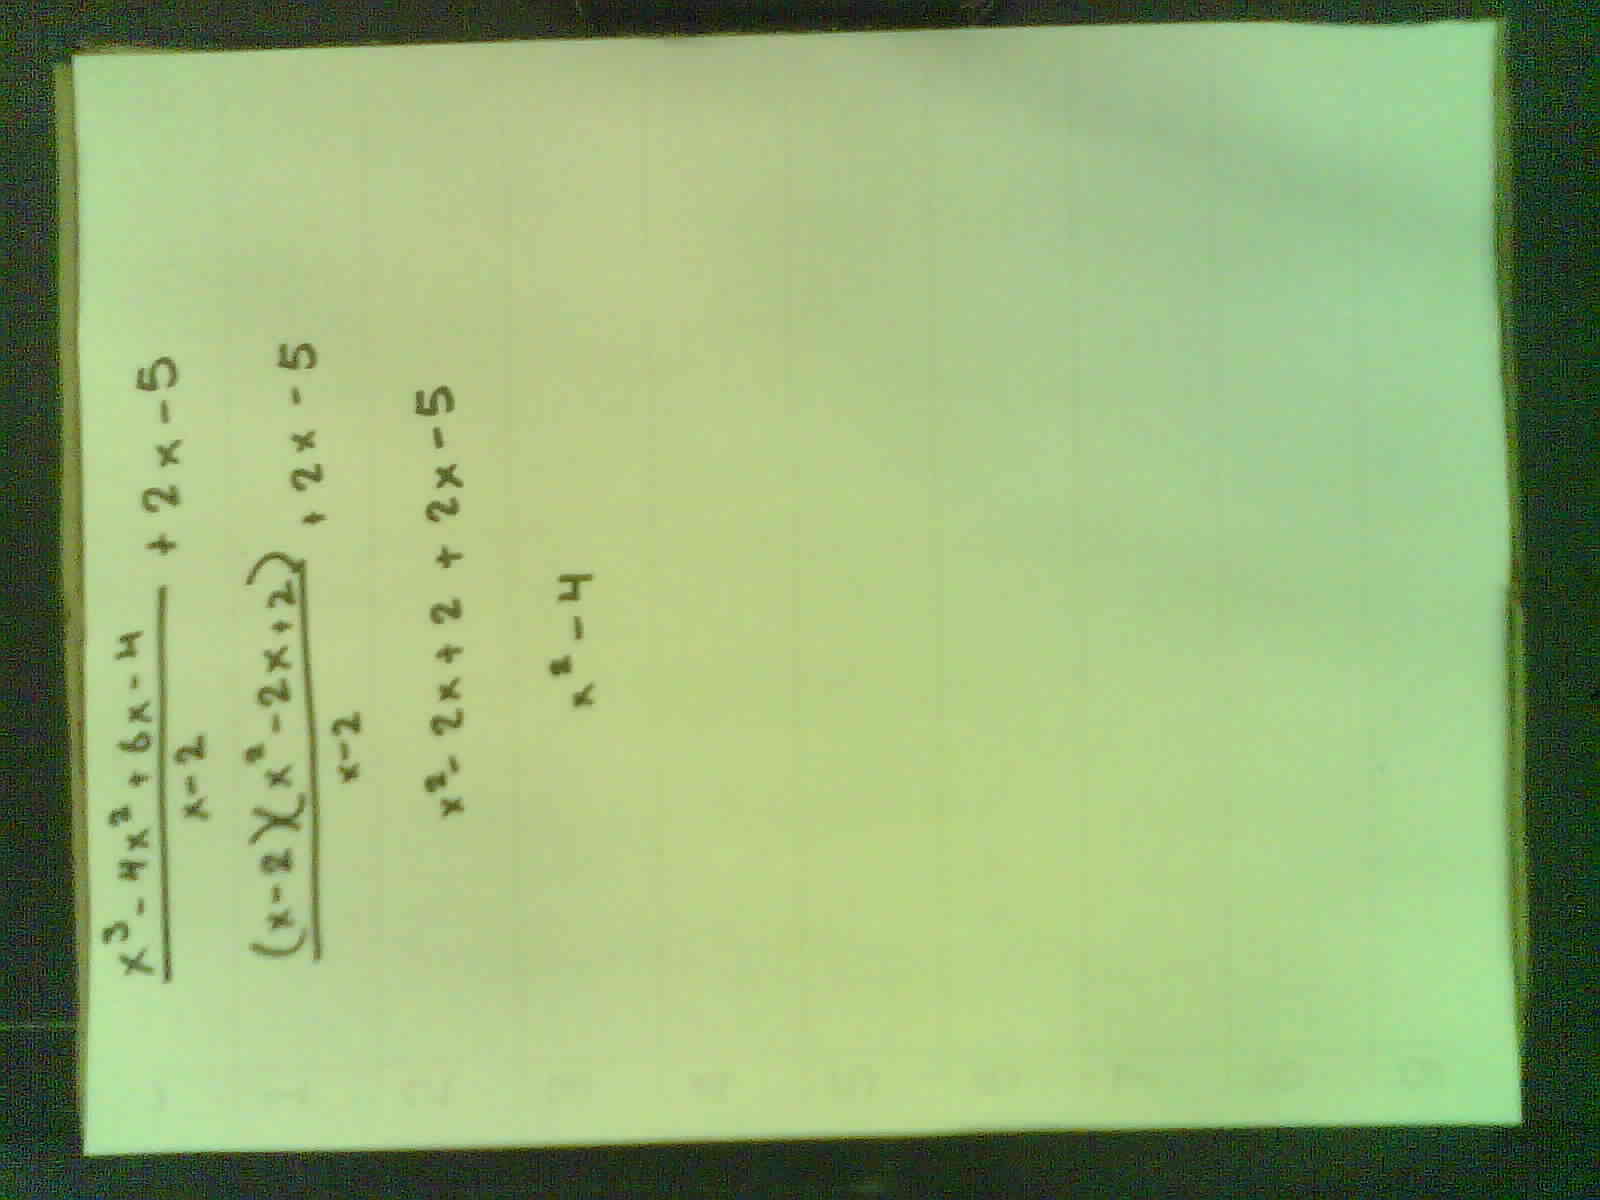 x³ - 4x² + 6x - 4 / x - 2 + 2x - 5
(x - 2)(x² - 2x + 2) / x - 2 + 2x - 5
x² - 2x + 2 + 2x - 5
x² - 4
1
2
3
4
5
6
7
8
9